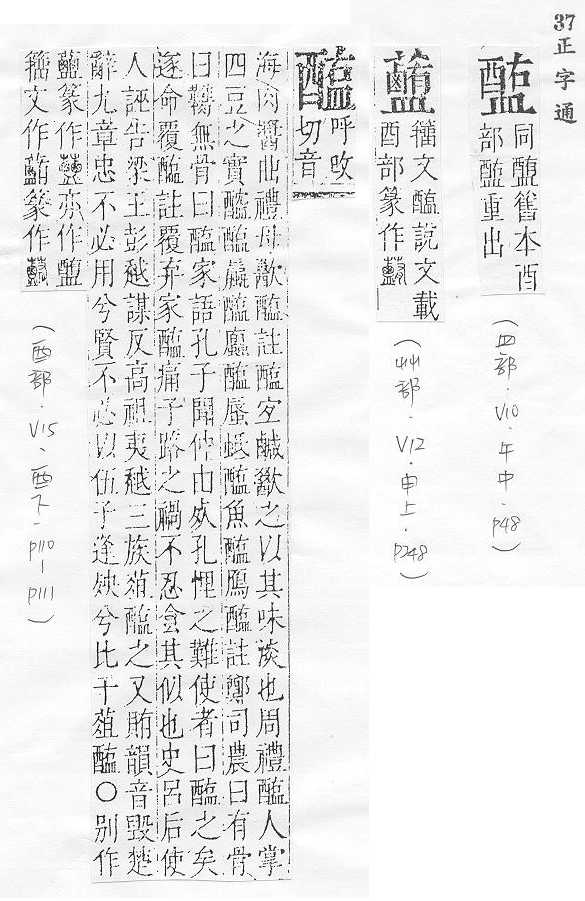 37 正字通
同醢舊本酉
部醢重出
(皿部.V10.午中.p48)
籀文醢說文載
酉部篆作
(艸部.V12.申上.p248)
醢 呼改
切音
海肉醬曲禮毋歠醢註醢宜鹹歠之以其味淡也周禮醢人掌
四豆之實醓醢蠃醢蠯醢蜃蚳醢魚醢鴈醢註鄭司農曰有骨
曰臡無骨曰醢家語孔子聞仲由死孔悝之難使者曰醢之矣
遂命覆醢註覆弃家醢痛子路之禍不忍食其似也史呂后使
人誣告梁王彭越謀反高祖夷越三族葅醢之又賄韻音毀楚
辭九章忠不必用兮賢不必以伍子逢殃兮比干葅醢○別作
篆作亦作
籀文作篆作
(酉部.V15、酉下.p110-p111)